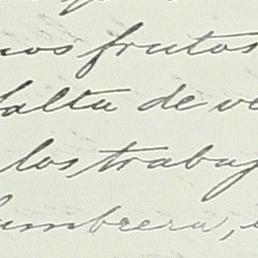 nos frutos
falta de ve
los trabaj
lumbrera,